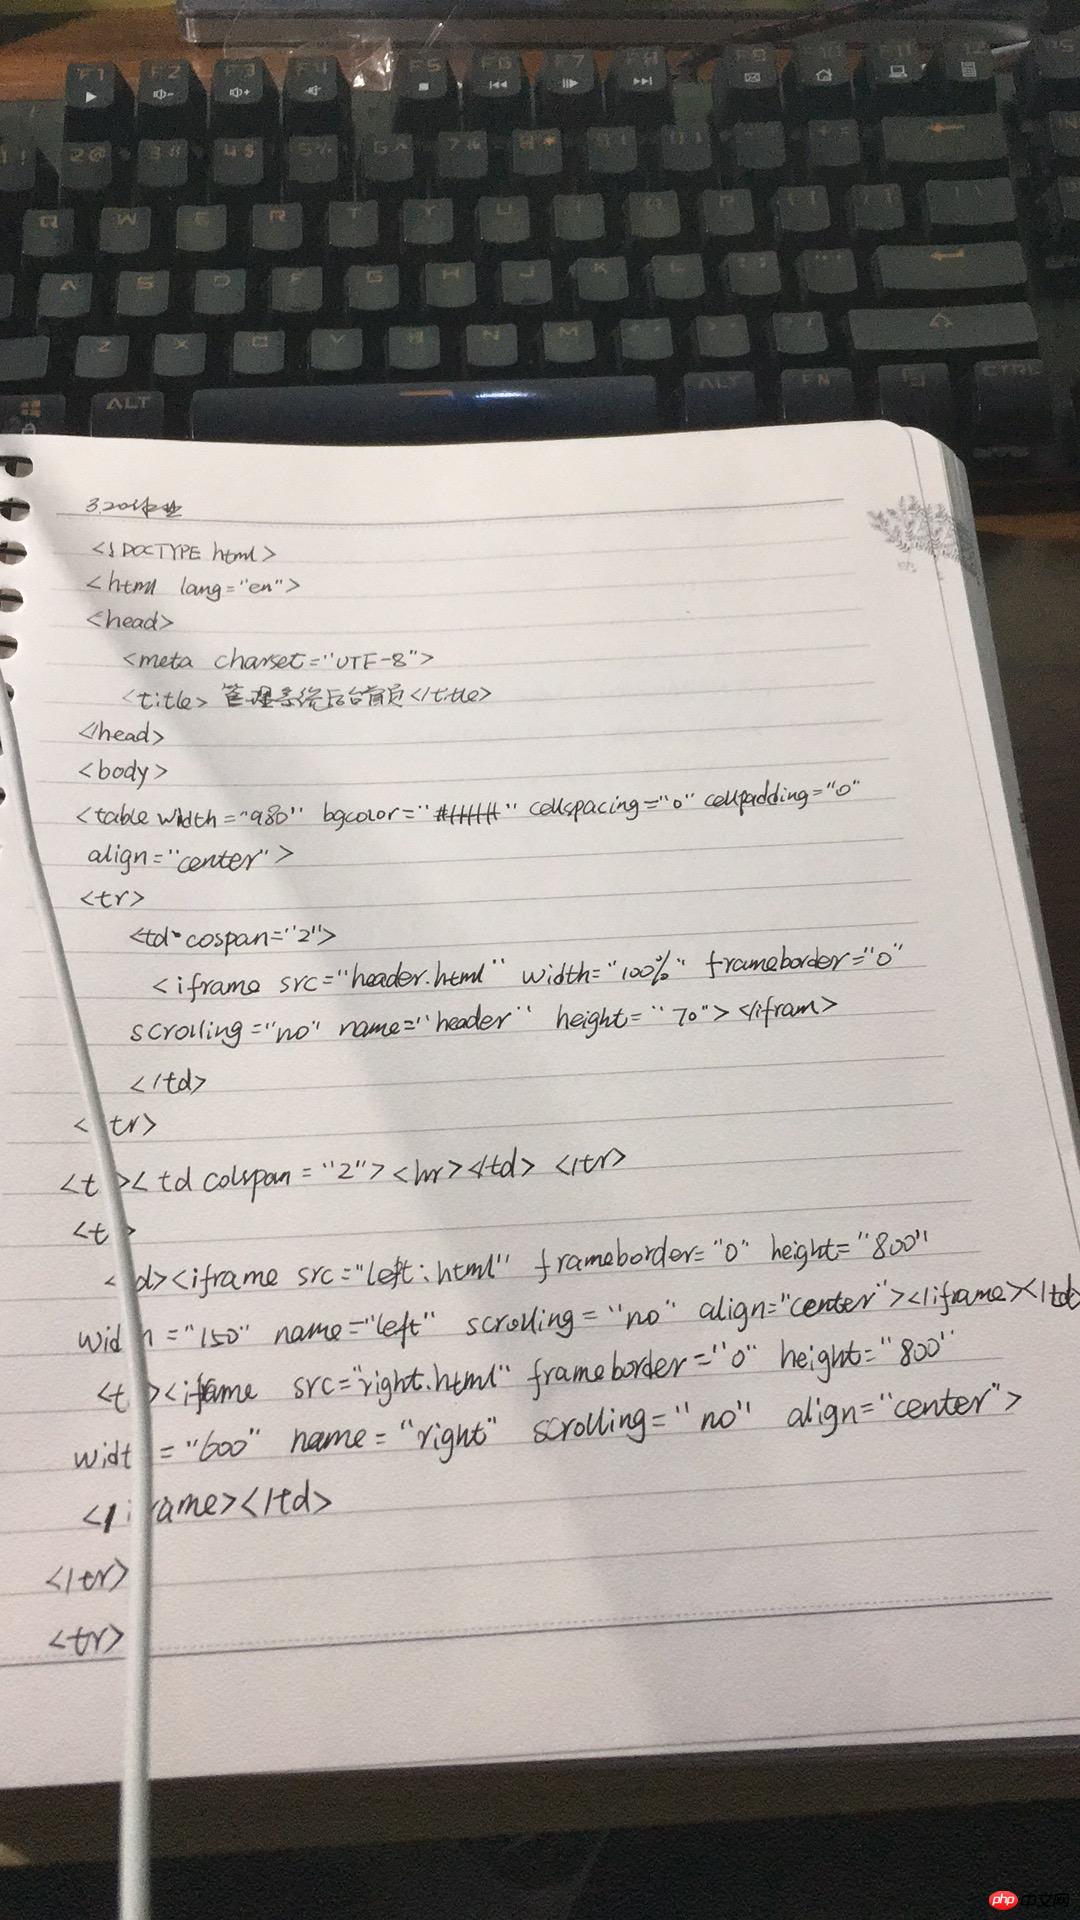 F1 F2 F3 F4 F5 F6 F7 F8 F9 F10 F11 F12
2@ 3# 4$ 5% 6^ 7& 8*
Q W E R T Y U I O P
A S D F G H J K L
Z X C V B N M
ALT ALT FN CTRL
3.20作业
<!DOCTYPE html>
<html lang="en">
<head>
<meta charset="UTF-8">
<title>管理系统后台首页</title>
</head>
<body>
<table width="980" bgcolor="#ffffff" cellspacing="0" cellpadding="0"
align="center">
<tr>
<td cospan="2">
<iframe src="header.html" width="100%" frameborder="0"
scrolling="no" name="header" height="70"></ifram>
</td>
< tr>
<t >< td colspan="2"><hr></td> </tr>
<t >
< d><iframe src="left.html" frameborder="0" height="800"
wid h="150" name="left" scrolling="no" align="center"></iframe></td>
<t ><iframe src="right.html" frameborder="0" height="800"
widt ="600" name="right" scrolling="no" align="center">
</i rame></td>
</tr>
<tr>
php 中文网